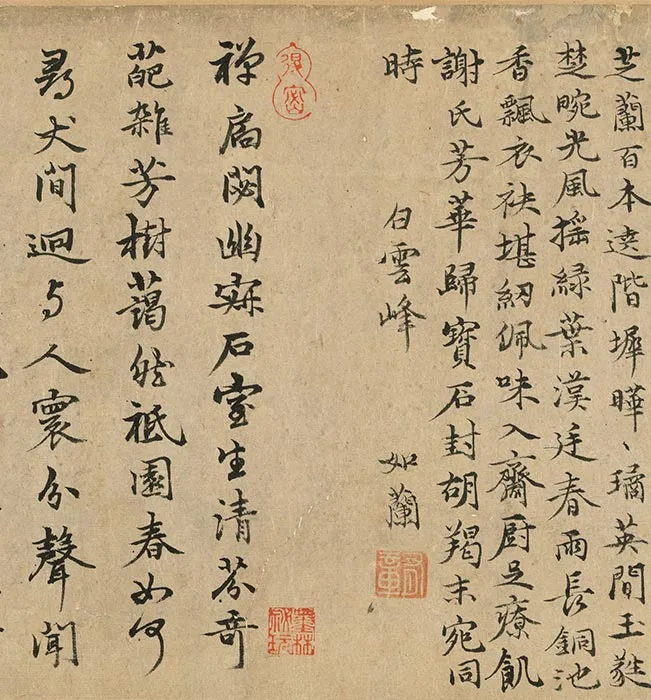 芝蘭百本遶階墀曄〻璚英間玉蕤
楚畹光風揺緑葉漢廷春雨長銅池
香飄衣袂堪紉佩味入齋厨足療飢
謝氏芳華歸寶石封胡羯末宛同
時
白雲峰 如蘭
禅扃閟幽寂石室生清芬奇
葩雜芳樹藹然祇園春如何
尋丈間逈与人寰分聲聞
墨林秘玩